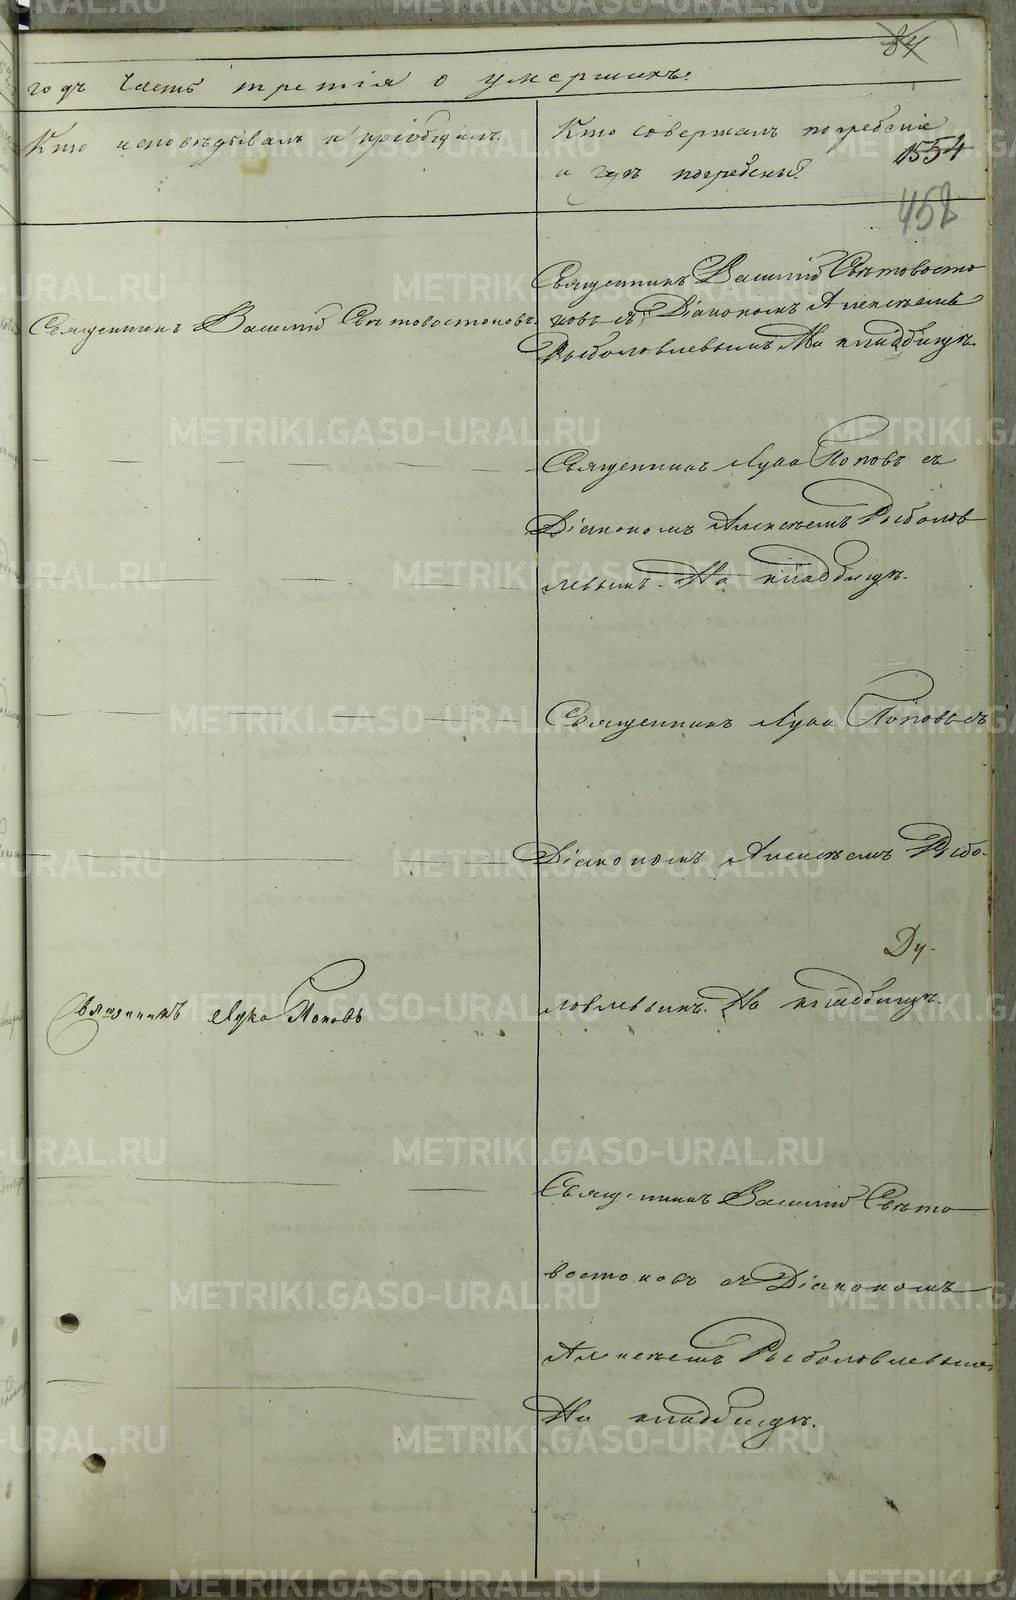 84
годъ Часть третія о умершихъ.
Кто исповѣдывалъ и пріобщалъ.
Кто совершалъ погребеніе
1554
и гдѣ погребены?
458
Священникъ Василій Свѣтовосто
ковъ съ Діакономъ Алексѣемъ
Рыболовлевымъ На кладбищѣ.
Священникъ Василій Свѣтовостоковъ.
Священникъ Лука Поповъ съ
Діакономъ Алексѣемъ Рыболов
левымъ. На кладбищѣ.
Священникъ Лука Поповъ съ
Діакономъ Алексѣемъ Рыбо-
Ду-
ловлевымъ. На кладбищѣ.
Священникъ Лука Поповъ
Священникъ Василій Свѣто
востоковъ съ Діакономъ
Алексѣемъ Рыболовлевымъ
На кладбищѣ.
METRIKI.GASO-URAL.RU